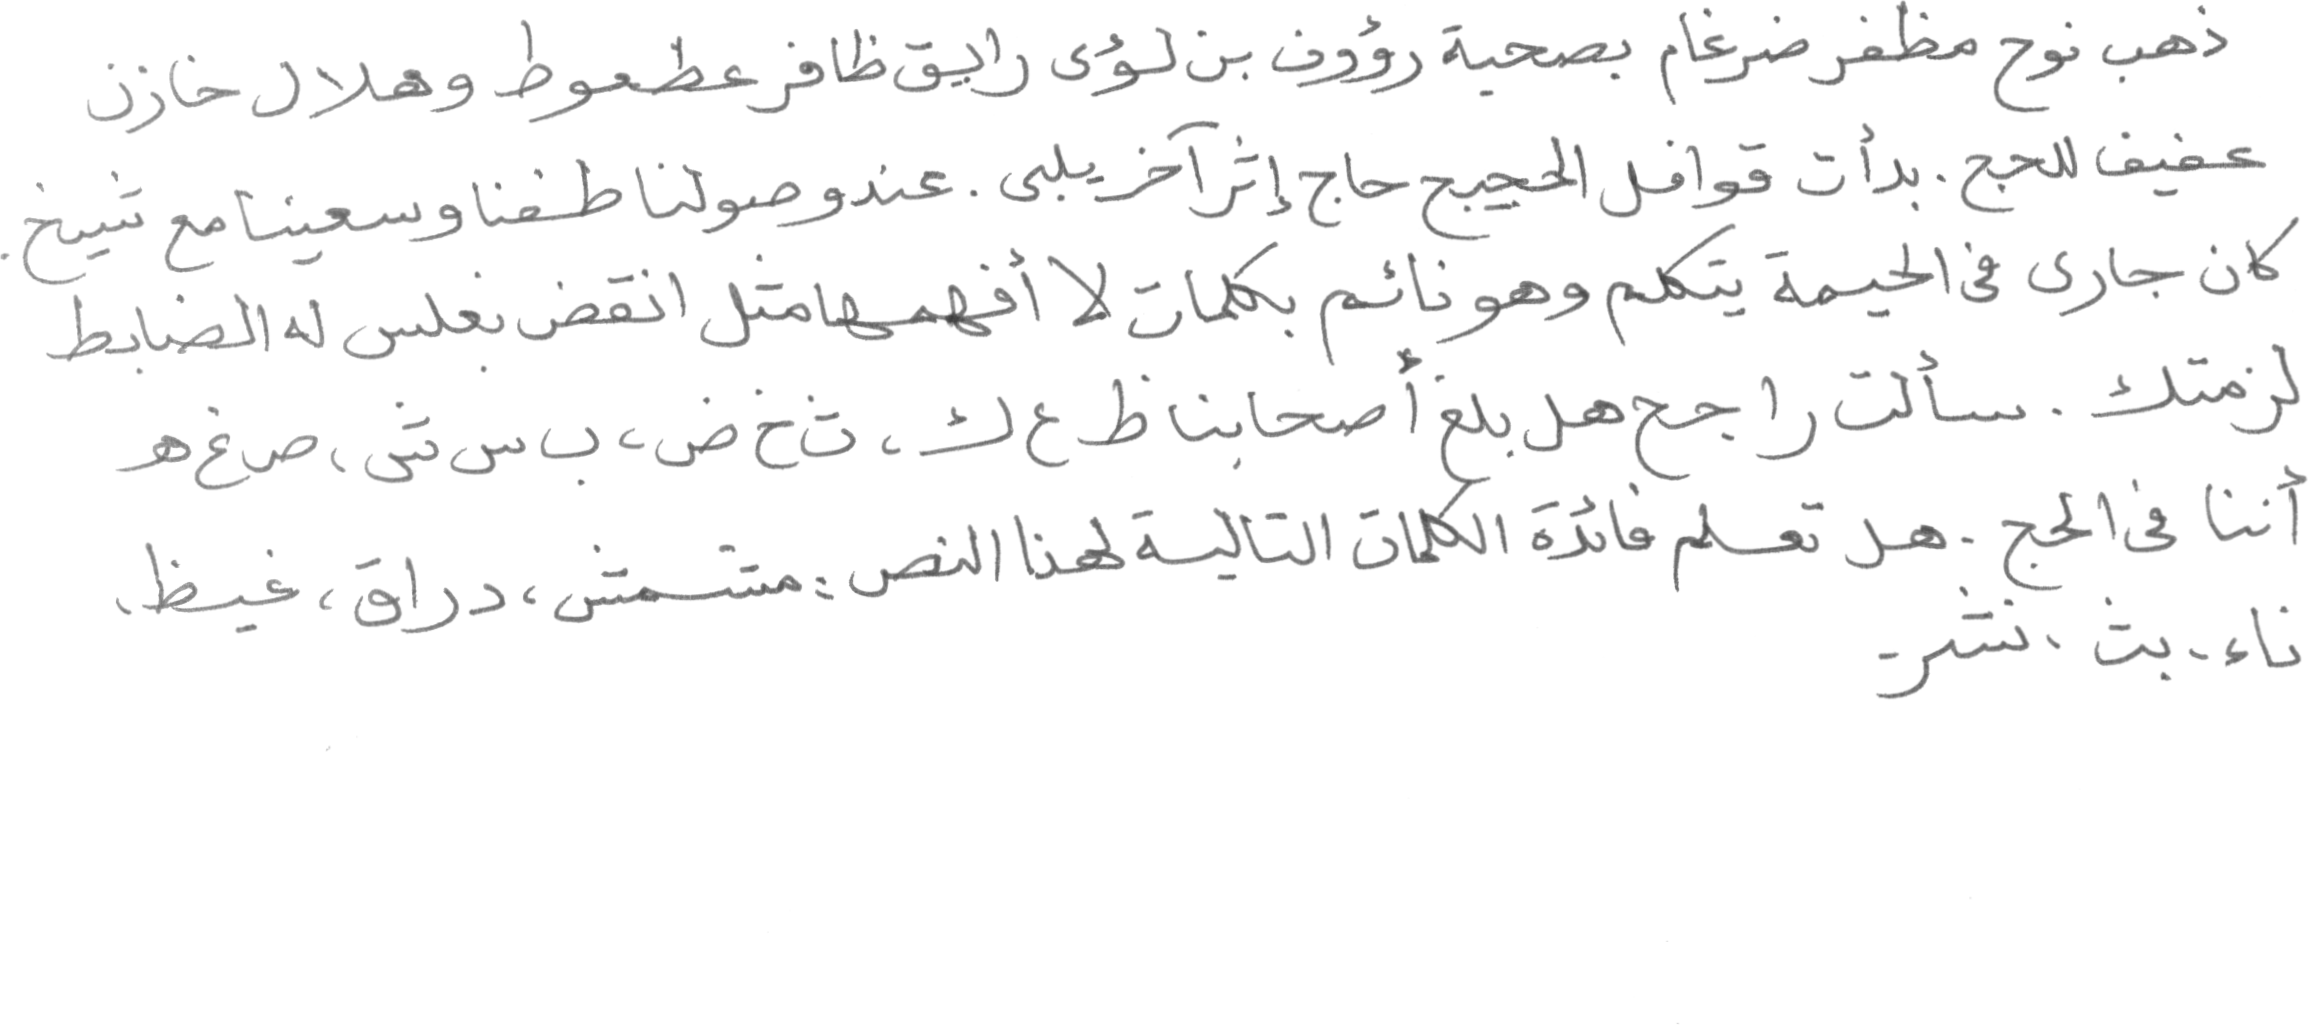 ذهب نوح مظفر ضرغام بصحبة رؤوف بن لؤى رايق ظافر عطعوط وهلال خازن
عفيف للحج. بدأت قوافل الحجيج حاج إثر آخر يلبى. عند وصولنا طفنا وسعينا مع شيخ.
كان جارى فى الخيمة يتكلم وهو نائم بكلمات لا أفهمها مثل انقض بغلس له الضابط
لزمتك. سألت راجح هل بلغ أصحابنا ظ ع ك، ث خ ض، ب س ش، ص غ هـ
أننا فى الحج. هل تعلم فائدة الكلمات التالية لهذا النص: مشمش، دراق، غيظ،
ناء، بث، نشر.